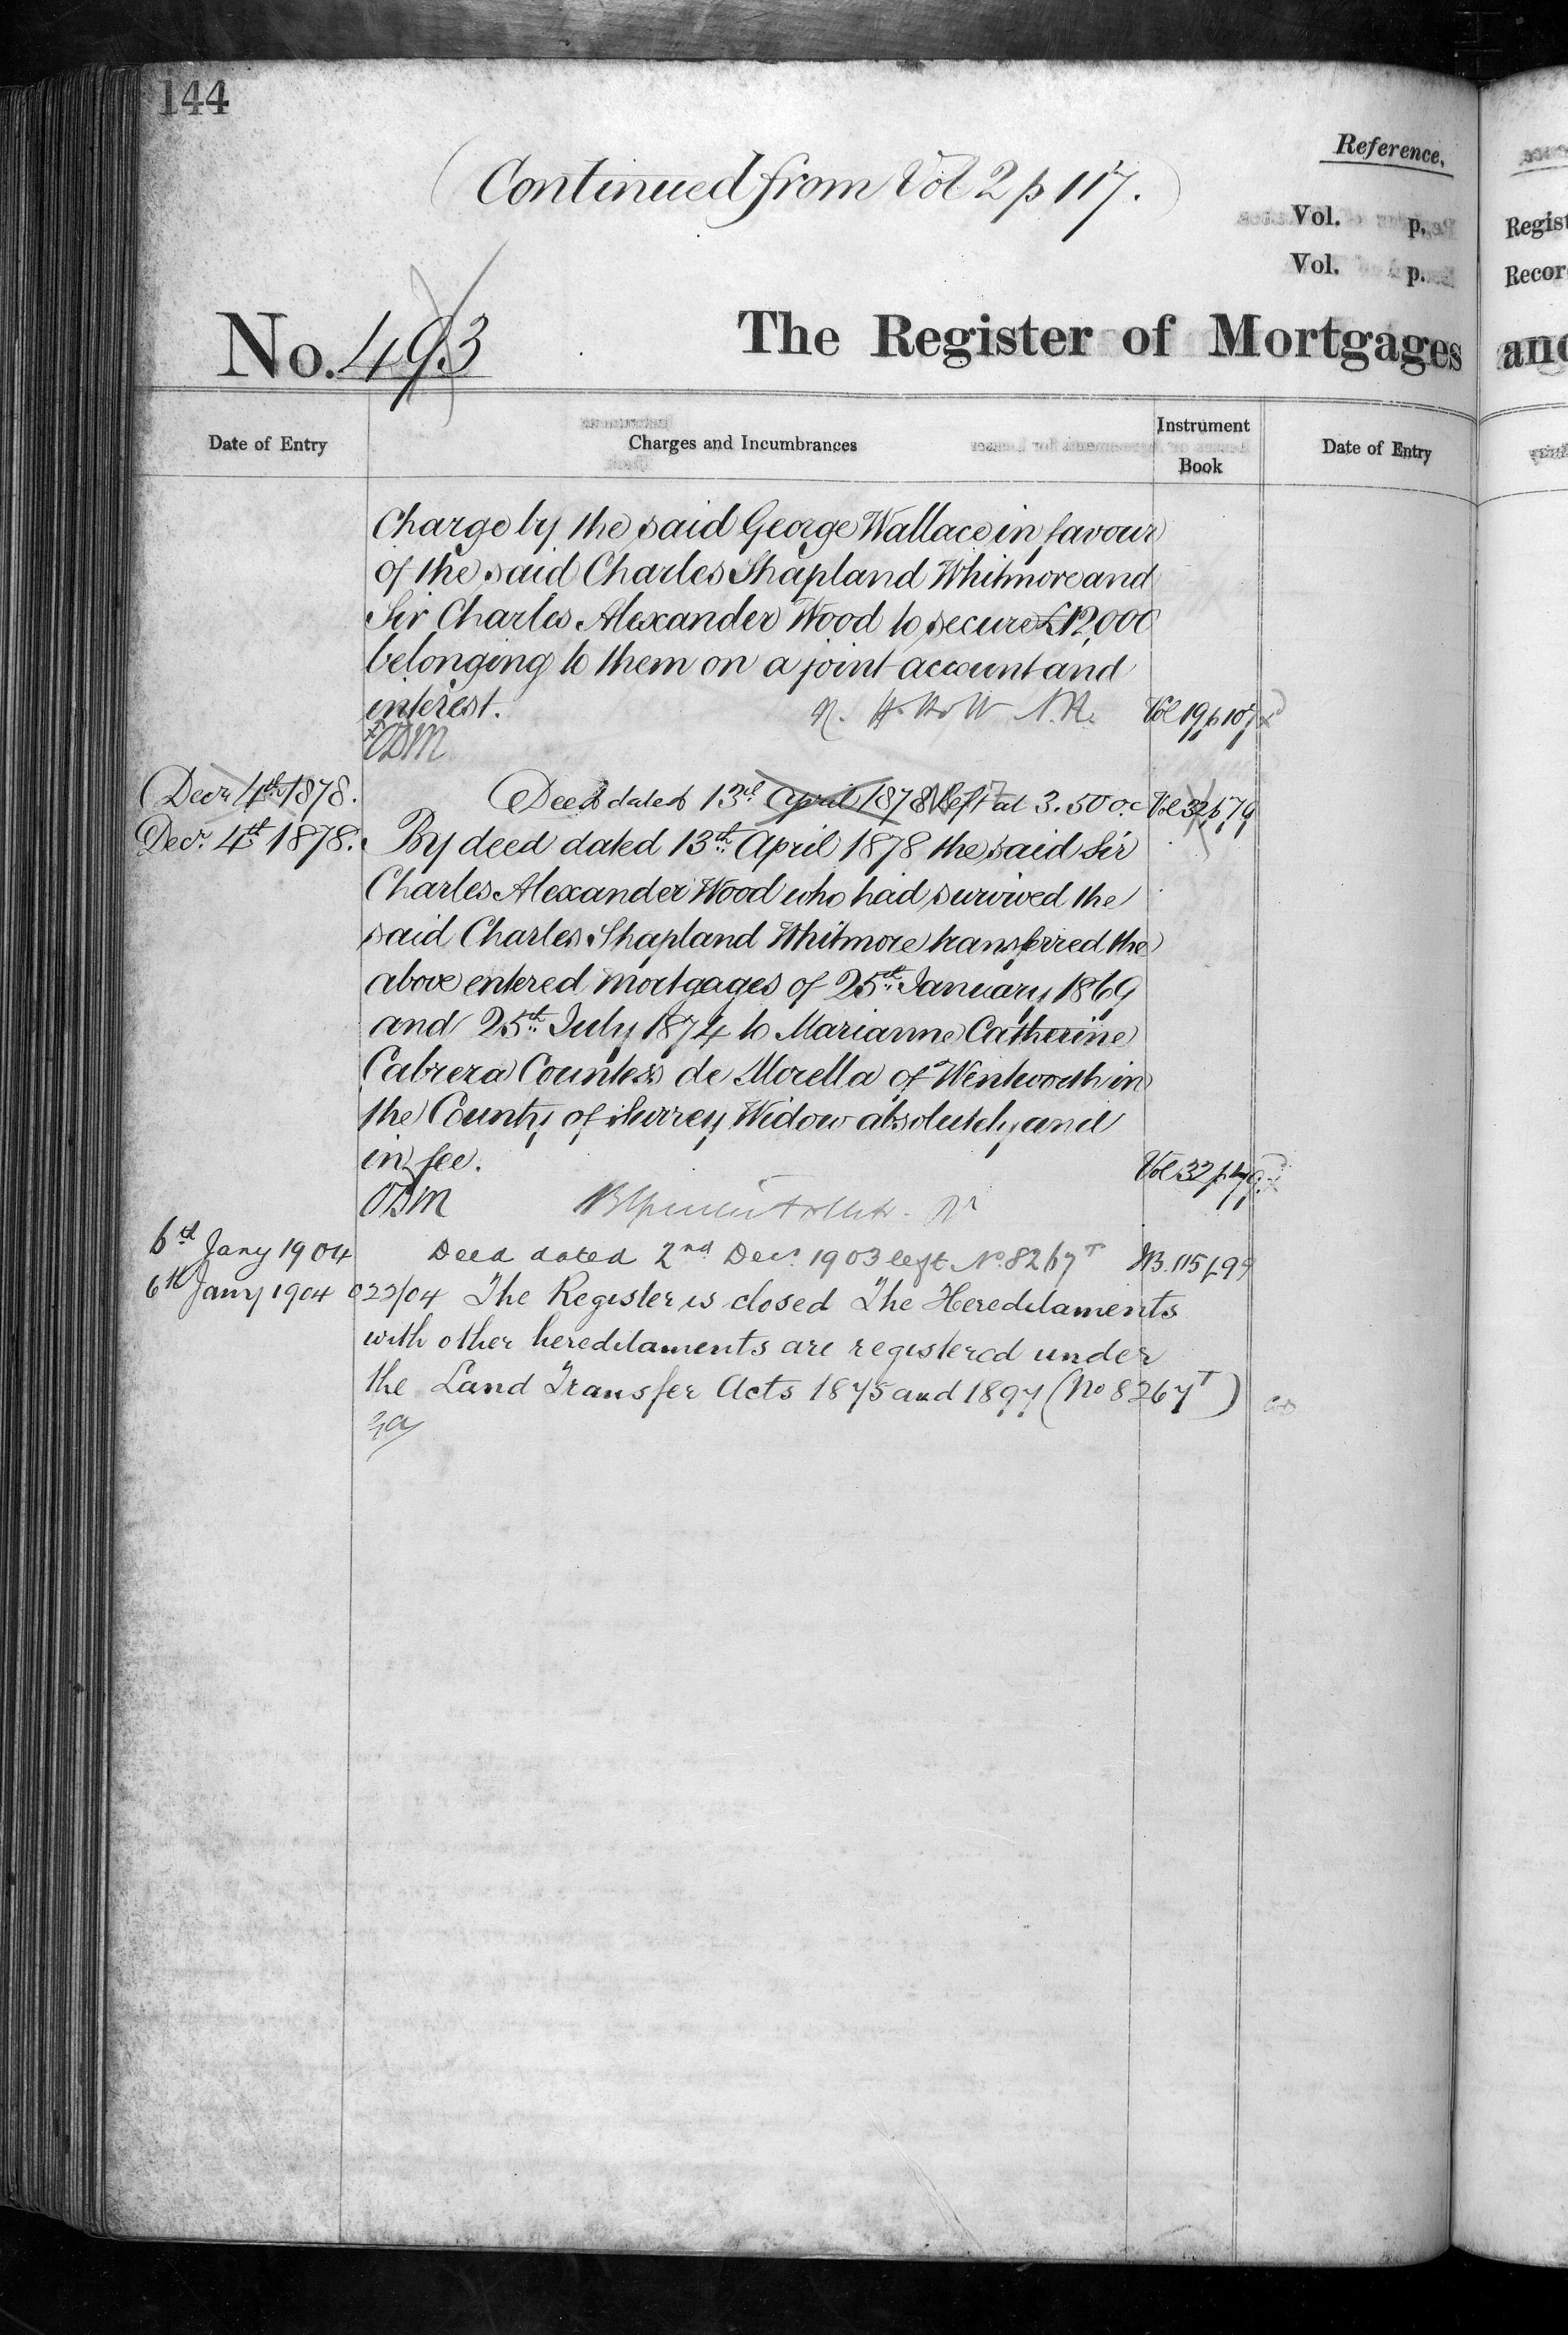 144
(Continued from Vol 2 p 117.)
Reference.
Vol. p.
Vol. p.
No. 493
The Register of Mortgages
Date of Entry
Charges and Incumbrances
Instrument
Book
Date of Entry
Charge by the said George Wallace in favour
of the said Charles Shapland Whitmore and
Sir Charles Alexander Wood to secure £12,000
belonging to them on a joint account and
interest. Vol 19 p 107
ODM
Decr 4th 1878. Deed dated 13th April 1878 left at 3.50 oc Vol 32 p 79
Decr. 4th 1878. By deed dated 13th April 1878 the said Sir
Charles Alexander Wood who had survived the
said Charles Shapland Whitmore transferred the
above entered mortgages of 25th January 1869
and 25th July 1874 to Marianne Catherine
Cabrera Countess de Morella of Wentworth in
the County of Surrey Widow absolutely and
in fee. Vol 32 p 79
ODM
6th Jany 1904 Deed dated 2nd Decr. 1903 left No. 8267T IB. 115 p 99
6th Jany 1904 022/04 The Register is closed The Hereditaments
with other hereditaments are registered under
the Land Transfer Acts 1875 and 1897 (No 8267T)
Regist
Recor
and